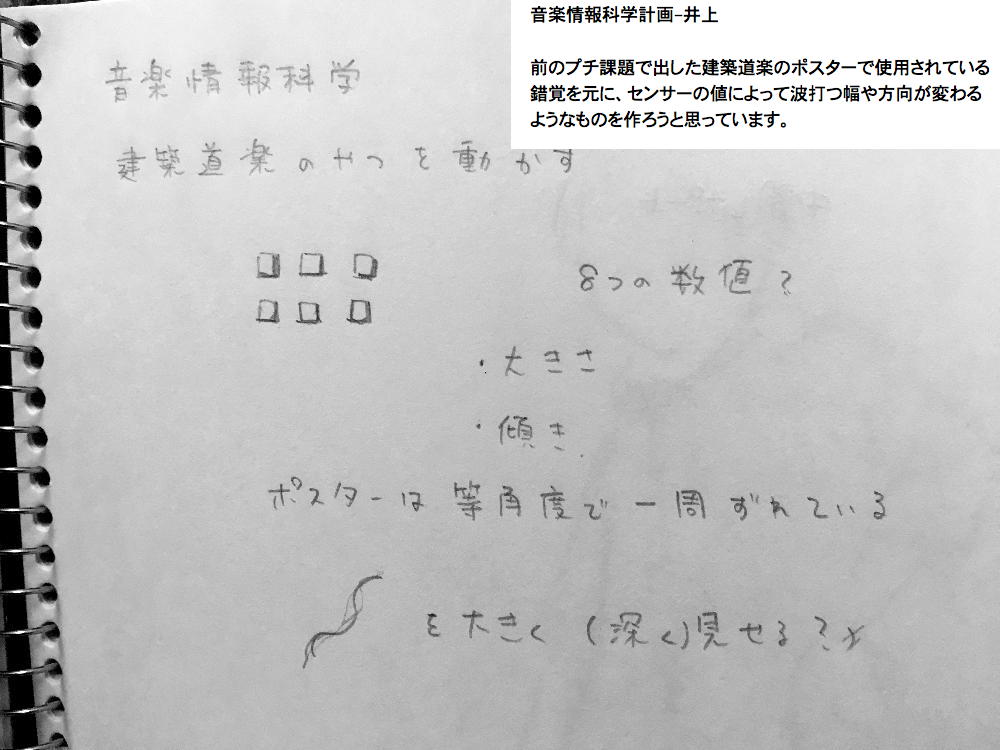 音楽情報科学計画-井上
前のプチ課題で出した建築道楽のポスターで使用されている
錯覚を元に、センサーの値によって波打つ幅や方向が変わる
ようなものを作ろうと思っています。
音楽情報科学
建築道楽のやつを動かす
8つの数値?
・大きさ
・傾き
ポスターは等角度で一周ずれている
を大きく(深く)見せる?